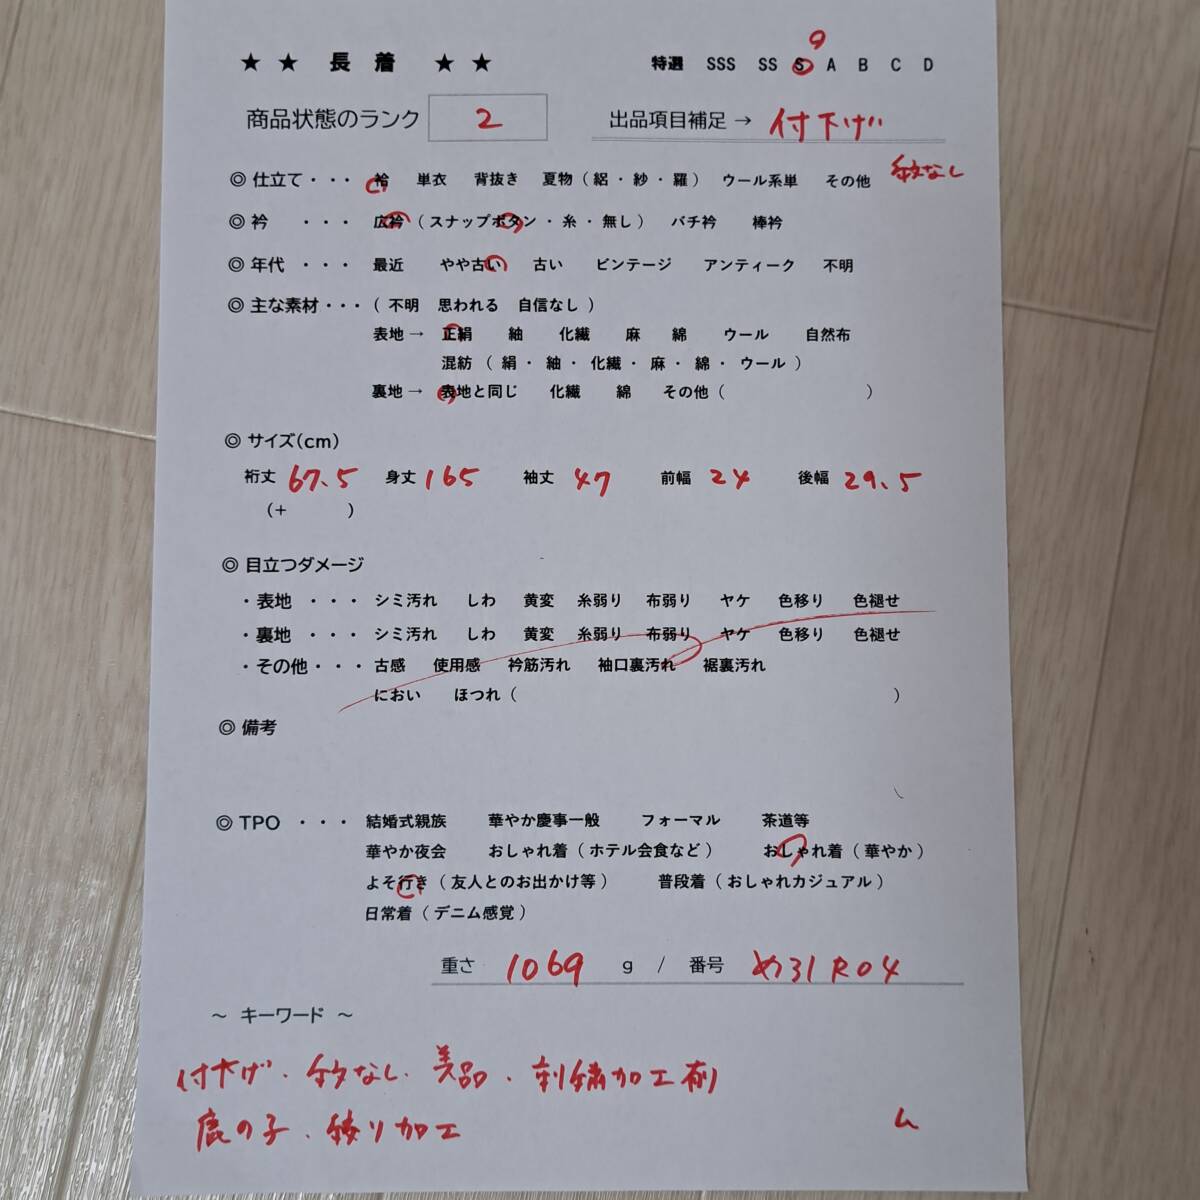 ★ ★ 長 着 ★ ★
9
特選 SSS SS S A B C D
商品状態のランク 2 出品項目補足 → 付下げ
紋なし
◎ 仕立て ・・・ 袷 単衣 背抜き 夏物 ( 絽 ・ 紗 ・ 羅 ) ウール系単 その他
◎ 衿 ・・・ 広衿 ( スナップボタン ・ 糸 ・ 無し ) バチ衿 棒衿
◎ 年代 ・・・ 最近 やや古い 古い ビンテージ アンティーク 不明
◎ 主な素材 ・・・ ( 不明 思われる 自信なし )
表地 → 正絹 紬 化繊 麻 綿 ウール 自然布
混紡 ( 絹 ・ 紬 ・ 化繊 ・ 麻 ・ 綿 ・ ウール )
裏地 → 表地と同じ 化繊 綿 その他 ( )
◎ サイズ(cm)
裄丈 67.5 身丈 165 袖丈 47 前幅 24 後幅 29.5
(+ )
◎ 目立つダメージ
・ 表地 ・・・ シミ汚れ しわ 黄変 糸弱り 布弱り ヤケ 色移り 色褪せ
・ 裏地 ・・・ シミ汚れ しわ 黄変 糸弱り 布弱り ヤケ 色移り 色褪せ
・ その他 ・・・ 古感 使用感 衿筋汚れ 袖口裏汚れ 裾裏汚れ
におい ほつれ ( )
◎ 備考
◎ TPO ・・・ 結婚式親族 華やか慶事一般 フォーマル 茶道等
華やか夜会 おしゃれ着 ( ホテル会食など ) おしゃれ着 ( 華やか )
よそ行き ( 友人とのお出かけ等 ) 普段着 ( おしゃれカジュアル )
日常着 ( デニム感覚 )
重さ 1069 g / 番号 め31R04
～ キーワード ～
付下げ・紋なし・美品・刺繍加工有り
鹿の子・絞り加工
ム